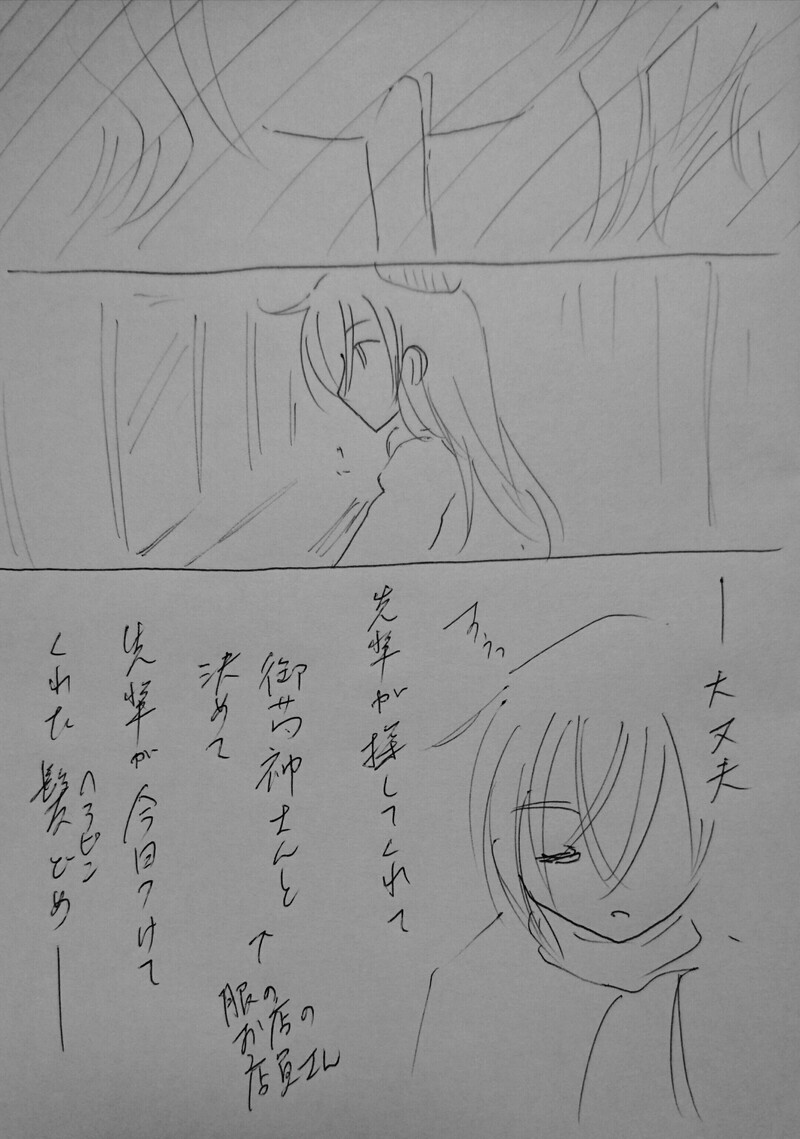 ―大丈夫
すぅっ
先輩が探してくれて
御芍神さんと
↑
服の
お店の
店員さん
決めて
先輩が今日つけて
くれた髪どめ―
ヘアピン